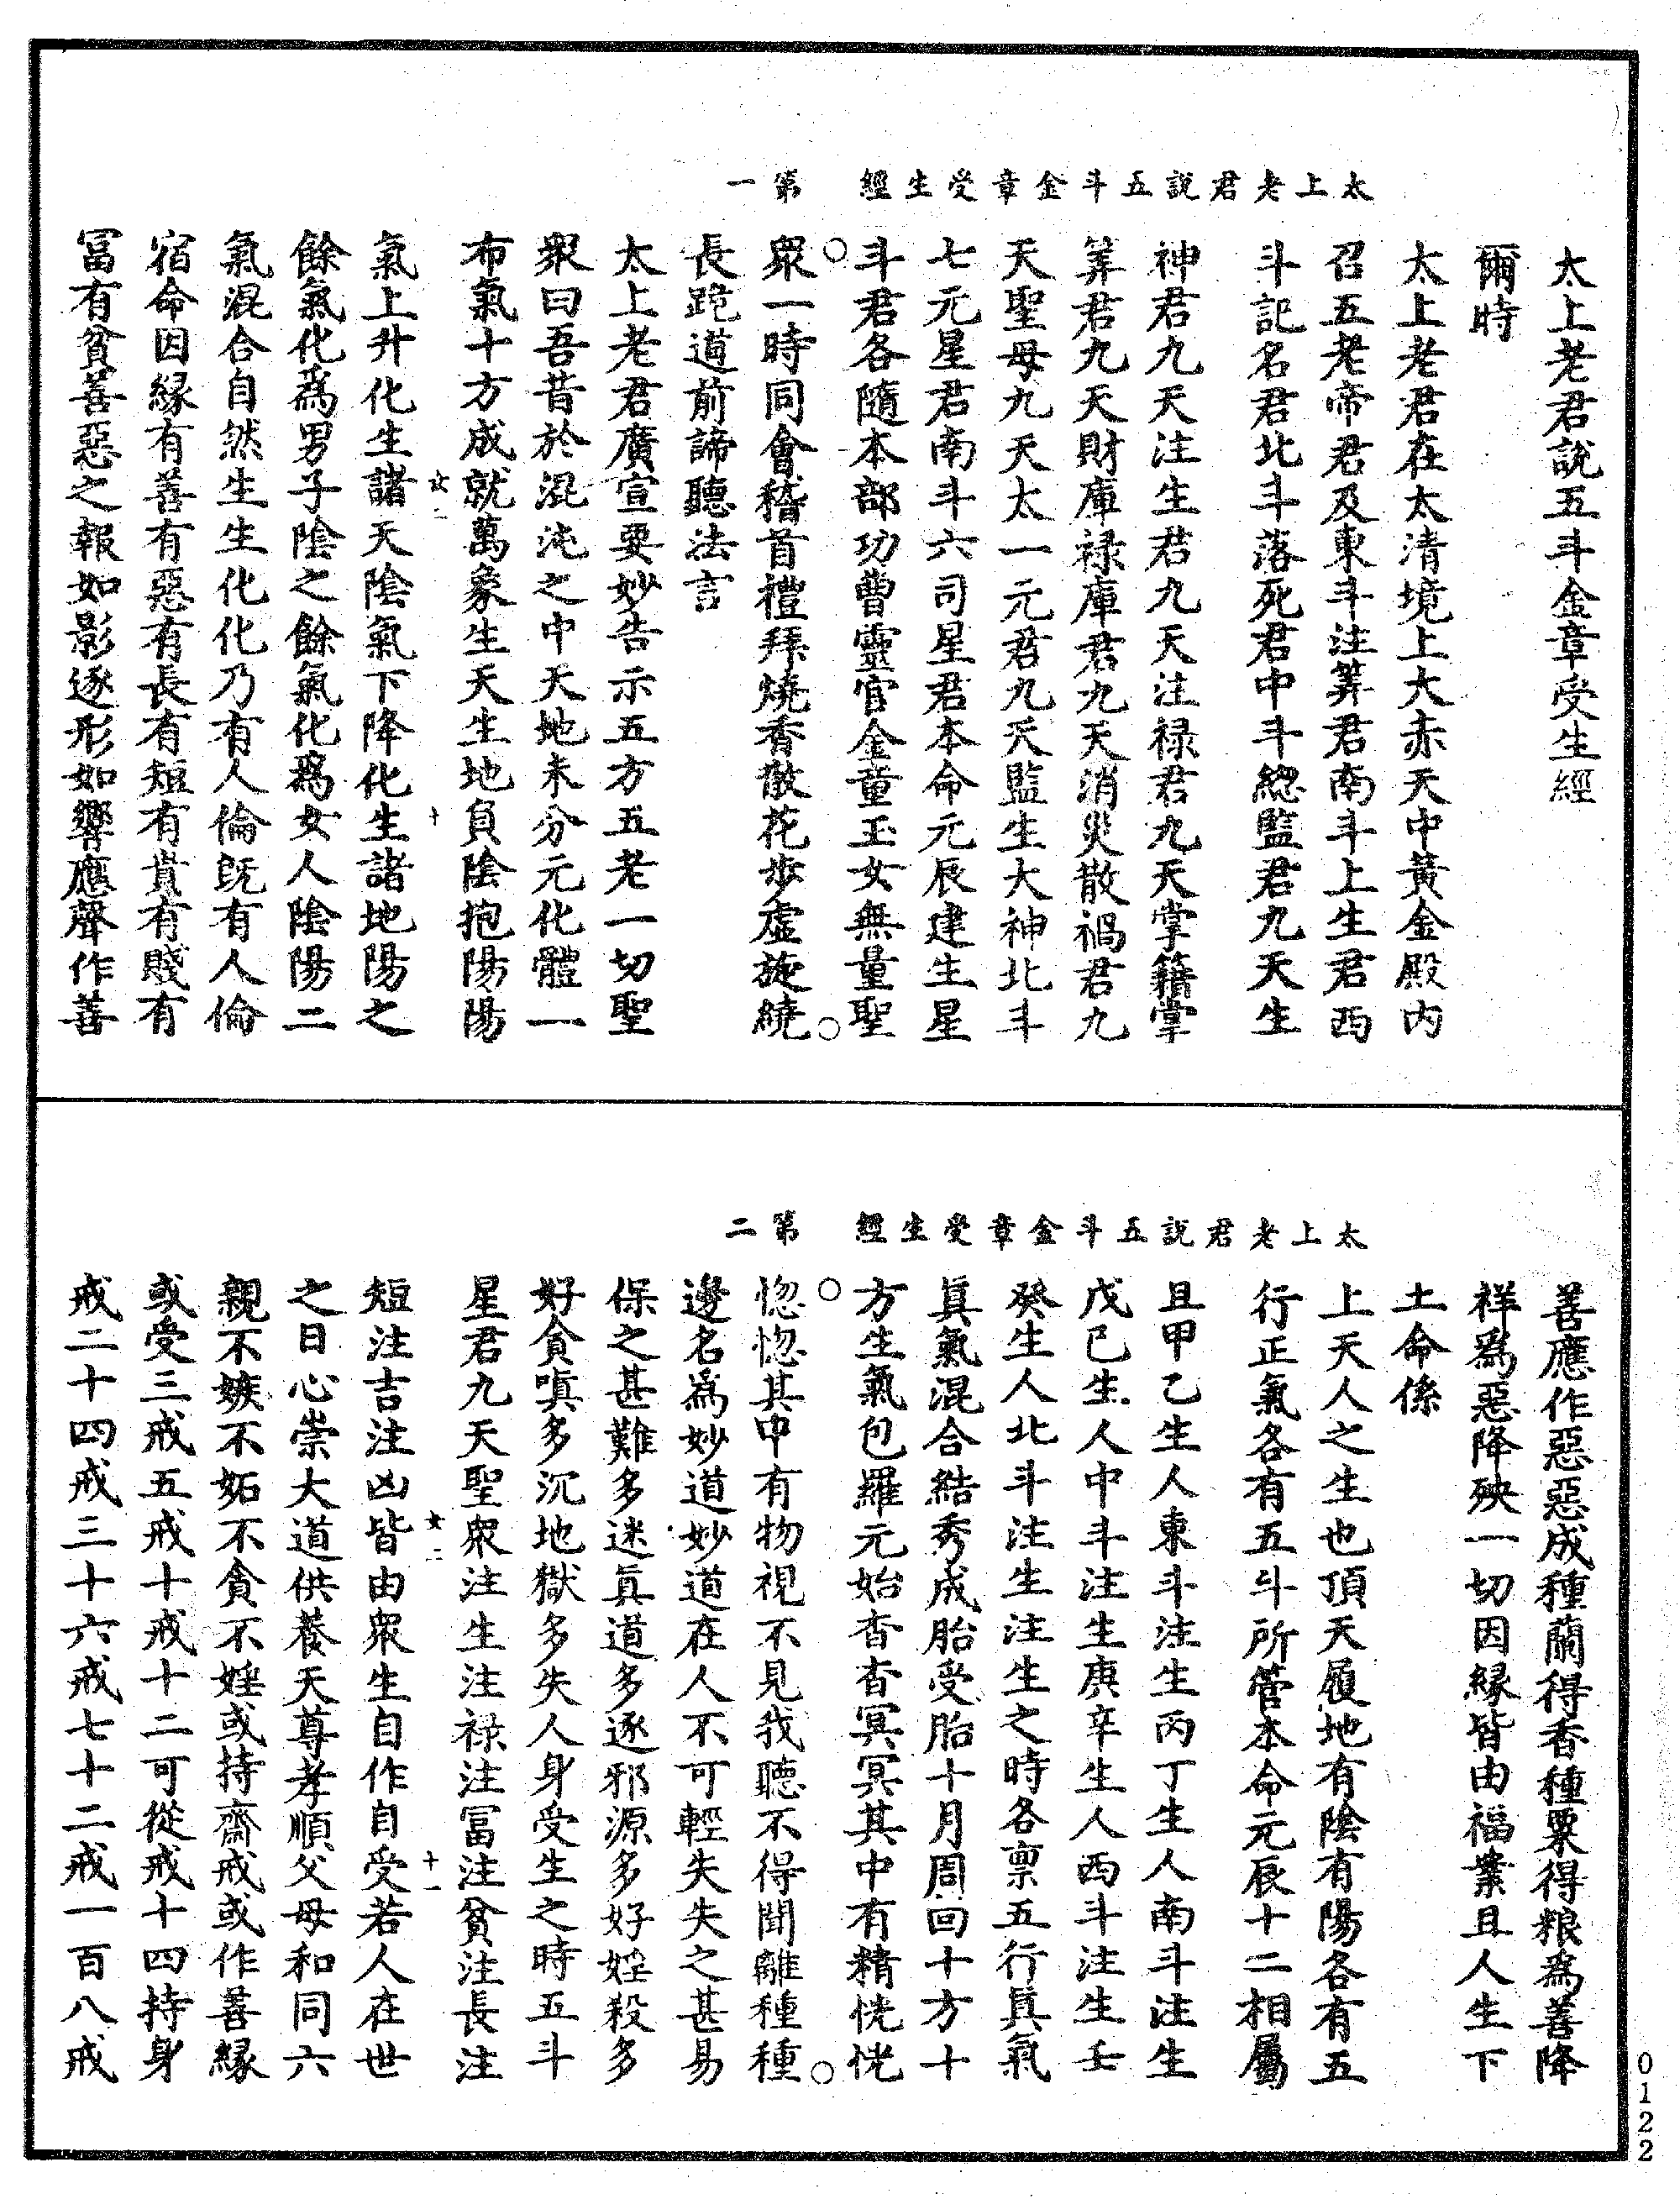 太上老君說五斗金章受生經　第一
太上老君說五斗金章受生經
爾時
太上老君在太清境上大赤天中黃金殿內
召五老帝君及東斗注筭君南斗上生君西
斗記名君北斗落死君中斗緫監君九天生
神君九天注生君九天注禄君九天掌籍掌
筭君九天財庫禄庫君九天消災散禍君九
天聖母九天太一元君九天監生大神北斗
七元星君南斗六司星君本命元辰建生星
斗君各隨本部功曹靈官金童玉女無量聖
眾一時同會稽首禮拜燒香散花步虛旋繞
長跪道前諦聽法言
太上老君廣宣要妙告示五方五老一切聖
眾曰吾昔於混沌之中天地未分元化體一
布氣十方成就萬象生天生地負陰抱陽陽
女二　十
氣上升化生諸天陰氣下降化生諸地陽之
餘氣化為男子陰之餘氣化為女人陰陽二
氣混合自然生生化化乃有人倫旣有人倫
宿命因緣有善有惡有長有短有貴有賤有
冨有貧善惡之報如影逐形如響應聲作善
太上老君說五斗金章受生經　第二
善應作惡惡成種蘭得香種粟得粮為善降
祥為惡降殃一切因緣皆由福業且人生下
土命係
上天人之生也頂天履地有陰有陽各有五
行正氣各有五斗所管本命元辰十二相屬
且甲乙生人東斗注生丙丁生人南斗注生
戊巳生人中斗注生庚辛生人西斗注生壬
癸生人北斗注生注生之時各禀五行眞氣
眞氣混合結秀成胎受胎十月周回十方十
方生氣包羅元始杳杳冥冥其中有精恍恍
惚惚其中有物視不見我聽不得聞離種種
邊名為妙道妙道在人不可輕失失之甚易
保之甚難多迷眞道多逐邪源多好婬殺多
好貪嗔多沉地獄多失人身受生之時五斗
星君九天聖眾注生注禄注冨注貧注長注
女二　十一
短注吉注凶皆由眾生自作自受若人在世
之日心崇大道供養天尊孝順父母和同六
親不嫉不妬不貪不婬或持齋戒或作善緣
或受三戒五戒十戒十二可從戒十四持身
戒二十四戒三十六戒七十二戒一百八戒
0122